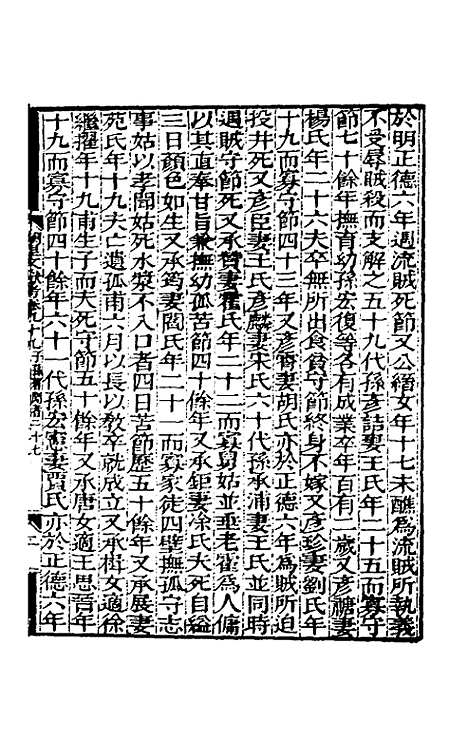 於明正德六年遇流賊死節又公縉女年十七未醮為流賊所執義
不受辱賊殺而支解之五十九代孫彥詰妻王氏年二十五而寡守
節七十餘年撫育幼孫宏復等各有成業卒年百有二歲又彥妻
楊氏年二十六夫卒無所出食貧守節終身不嫁又彥珍妻劉氏年
十九而寡守節四十三年又彥妻胡氏亦於正德六年為賊所迫
投井死又彥臣妻王氏彥麟妻宋氏六十代孫承浦妻王氏並同時
遇賊守節死又承妻霍氏年二十二而寡舅姑並垂老霍為人傭
以其直奉甘旨兼撫幼孤苦節四十餘年又承鉅妻涂氏夫死自縊
三日顏色如生又承筠妻閻氏年二十一而寡家徒四壁撫孤守志
事姑以孝聞姑死水漿不入口者四日苦節歷五十餘年又承展妻
苑氏年十九夫亡遺孤甫六月以長以教卒就成立又承楫女適徐
繼擢年十九甫生子而夫死守節五十餘年又承唐女適王思晉年
十九而寡守節四十餘年六十一代孫宏憲妻賈氏亦於正德六年